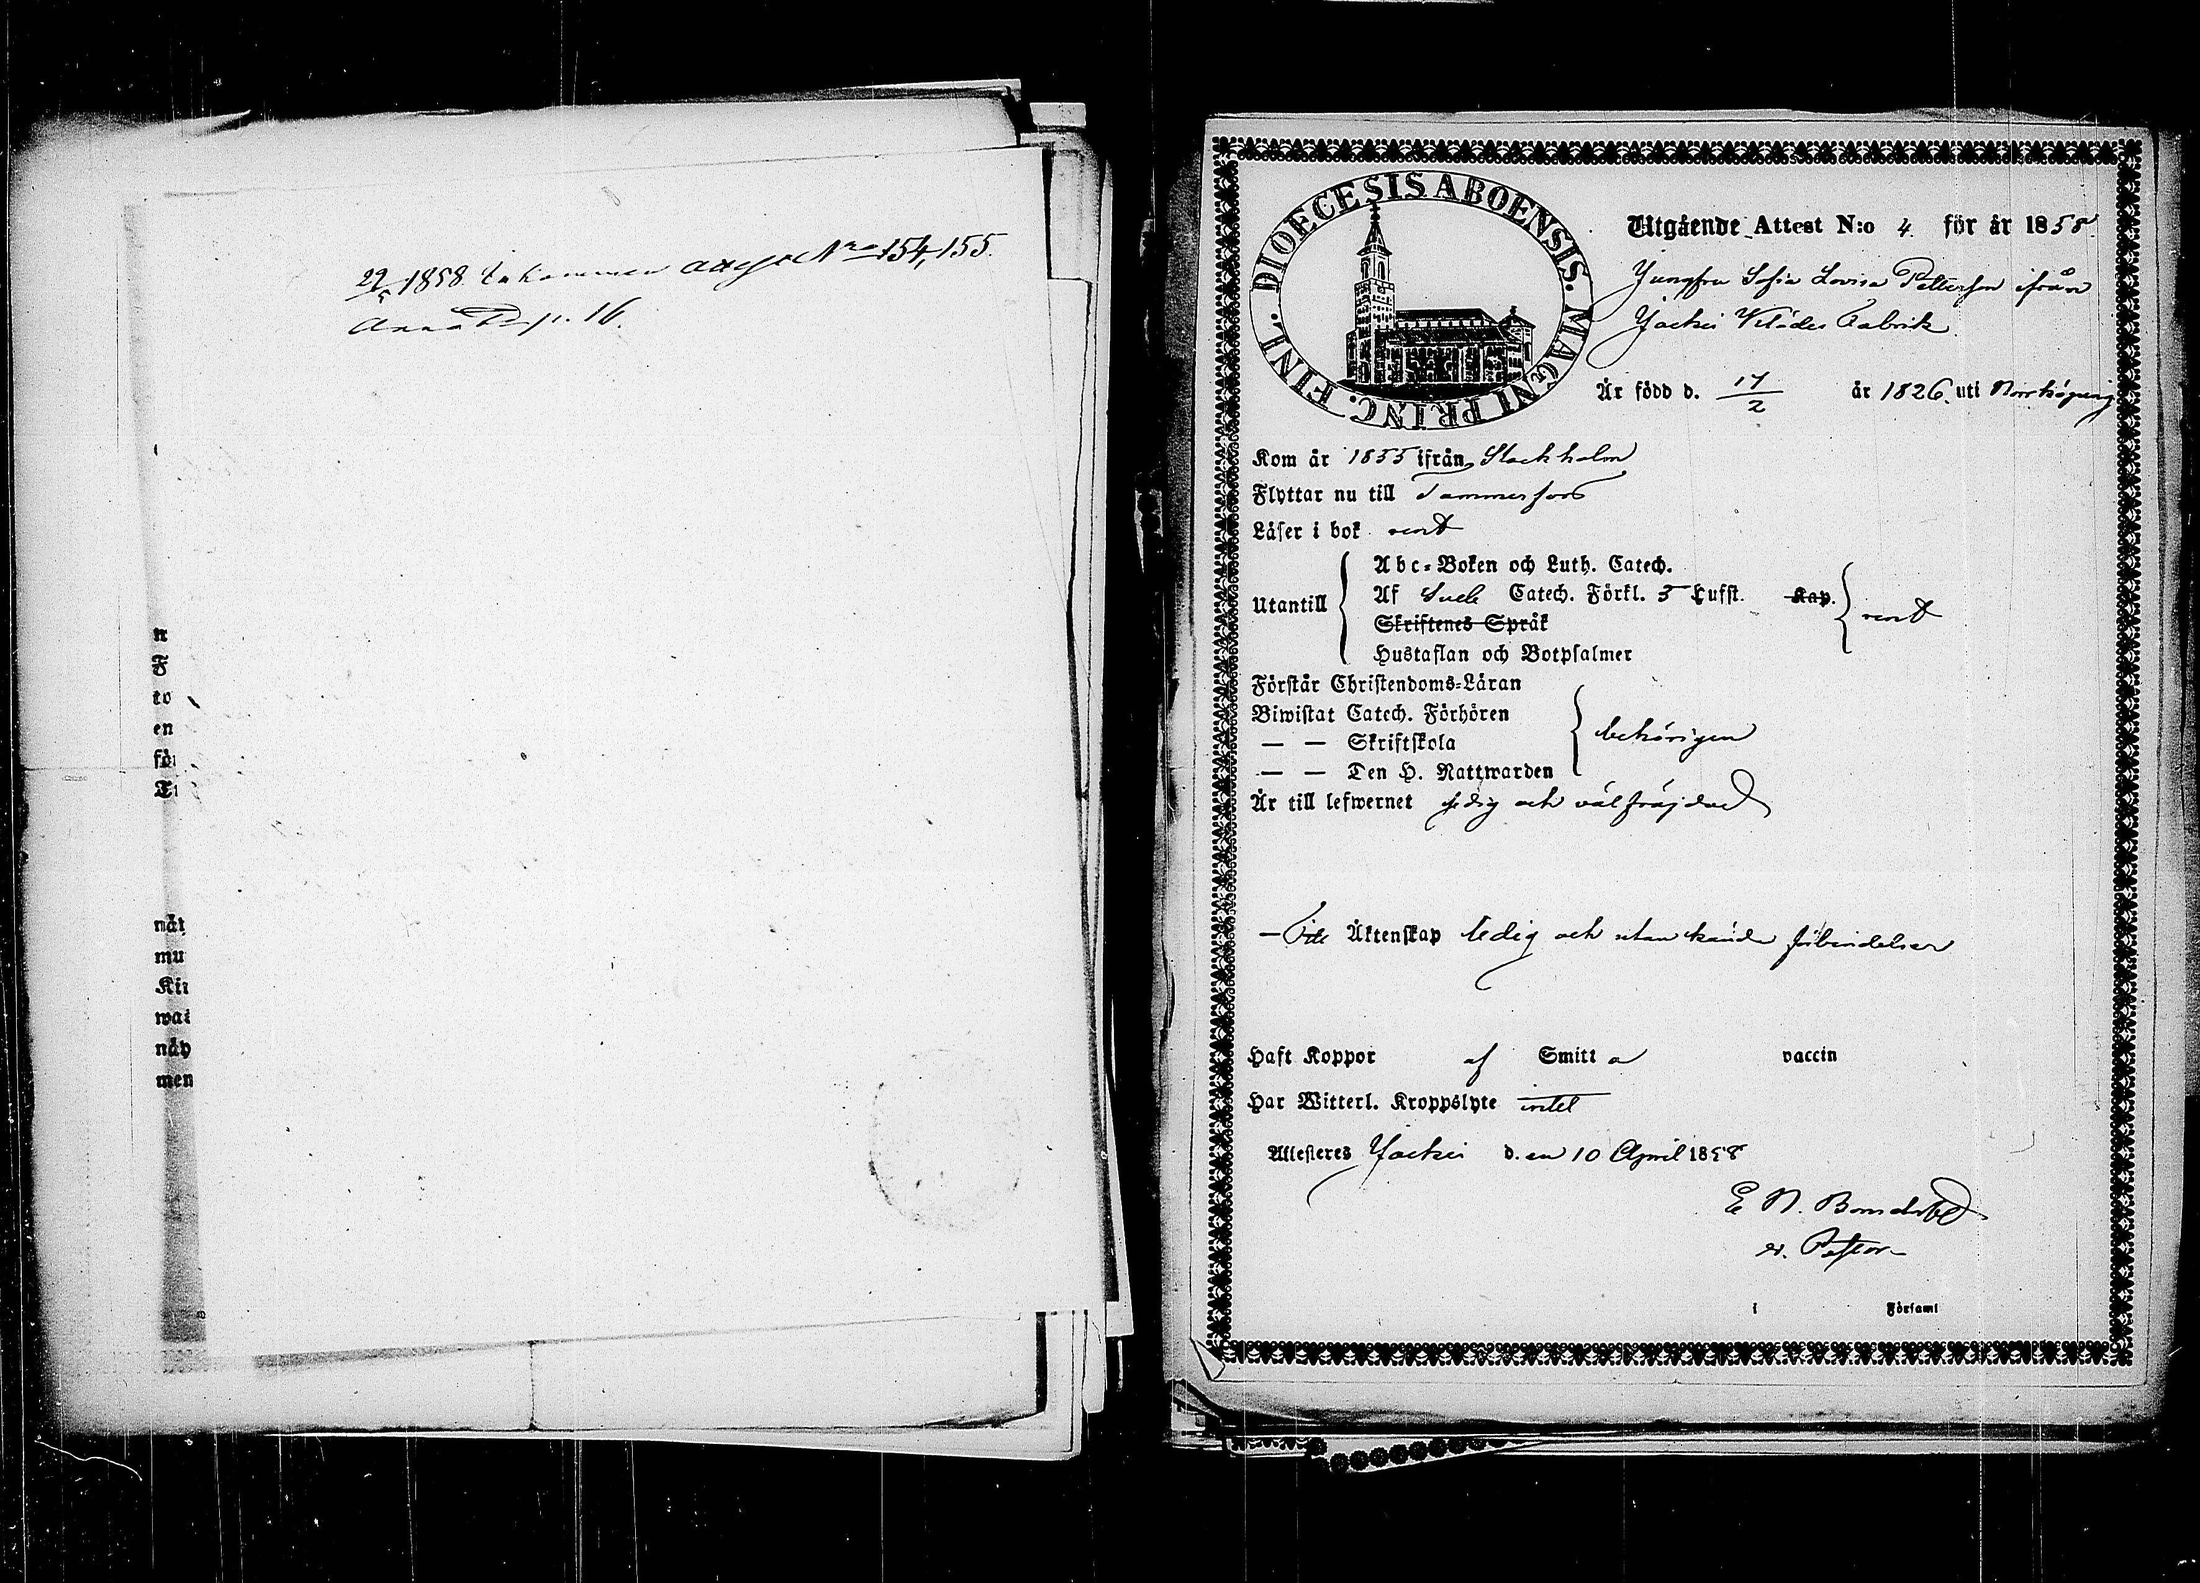 22/5 1858. Inkommen attest Nro 154, 155.
Anna p. 16.
n
F
to
en
för
nåt
mu
Kir
wai
nåp
men
DIOECESIS ABOENSIS. MAGNI PRINC. FINL.
Utgående Attest N:o 4 för år 1858.
Jungfru Sofia Lovisa Petterson ifrån
Jockis Klädes Fabrik
Är född d. 17/2 år 1826. uti Norrköping
Kom år 1855 ifrån Stockholm
Flyttar nu till Tammerfors
Läser i bok rent
Abc-Boken och Luth. Catech.
Utantill Af Sveb Catech. Förkl. 3 Hufst. Kap. rent
Skriftenes Språk
Hustaflan och Botpsalmer
Förstår Christendoms-Läran
Biwistat Catech. Förhören
— — Skriftskola behörigen
— — Den H. Nattwarden
Är till lefwernet sedig och välfräjdad
— Till Äktenskap ledig och utan kända förbindelser
Haft Koppor af Smitt a vaccin
Har Witterl. Kroppslyte intet
Attesteres Jockis d. en 10 April 1858
E N. Bonsdorff
v. Pastor
i Församl